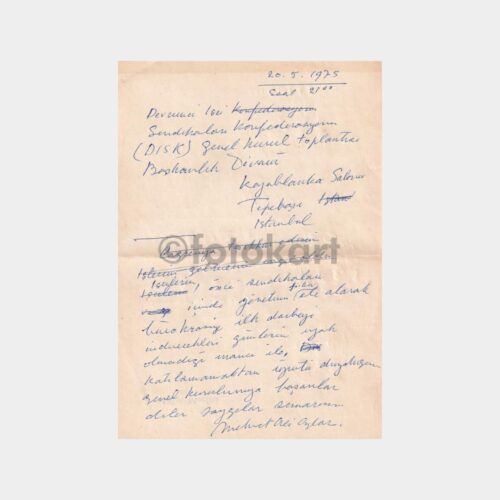 20.5.1975
Saat 21⁰⁰
Devrimci İşci Konfederasyon
Sendikaları Konfederasyonu
(DİSK) Genel Kurul toplantısı
Başkanlık Divanı
Kazablanka Salonu
Tepebaşı İstan
İstanbul
©fotokart
öncü sendikaları
içinde yönetim
alarak
bürokrasiye ilk darbeyi
indirecekleri günlerin uzak
olmadığı inancı ile,
katılamamaktan üzüntü duyduğum
genel kurulunuza başarılar
diler saygılar sunarım
Mehmet Ali Aybar.